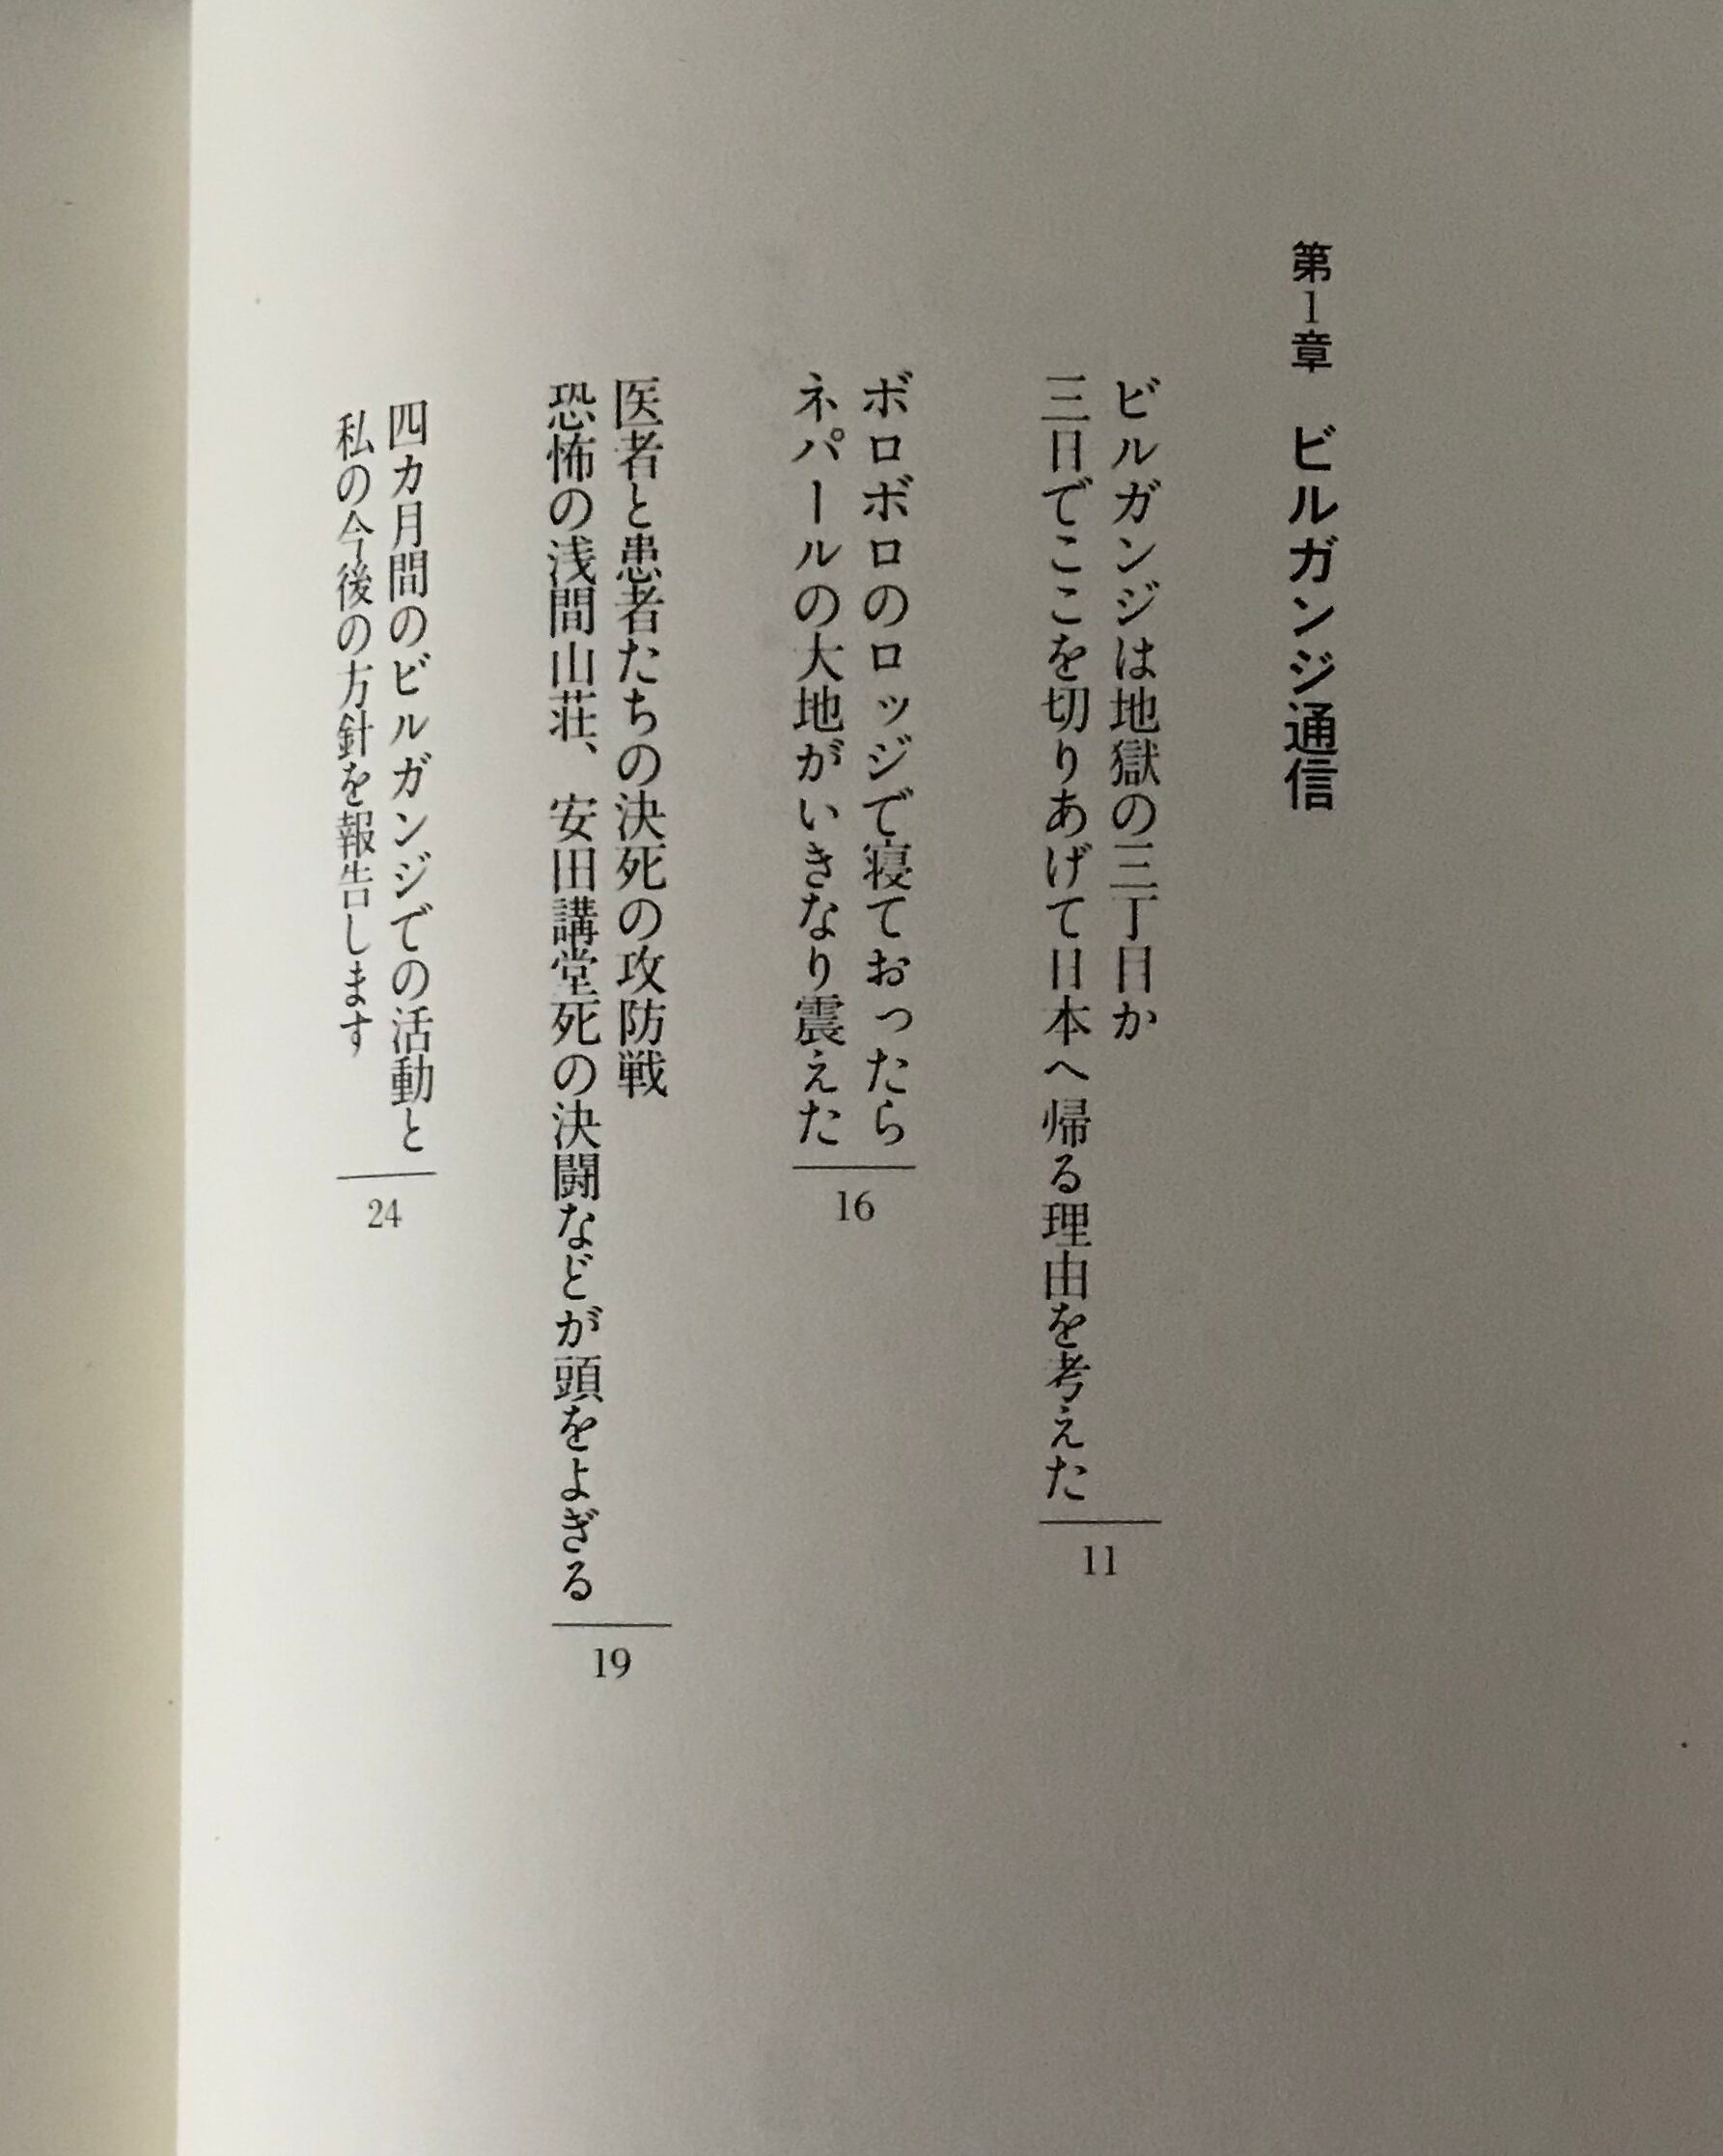 第1章 ビルガンジ通信
ビルガンジは地獄の三丁目か
三日でここを切りあげて日本へ帰る理由を考えた
11
ボロボロのロッジで寝ておったら
ネパールの大地がいきなり震えた
16
医者と患者たちの決死の攻防戦
恐怖の浅間山荘、安田講堂死の決闘などが頭をよぎる
19
四カ月間のビルガンジでの活動と
私の今後の方針を報告します
24